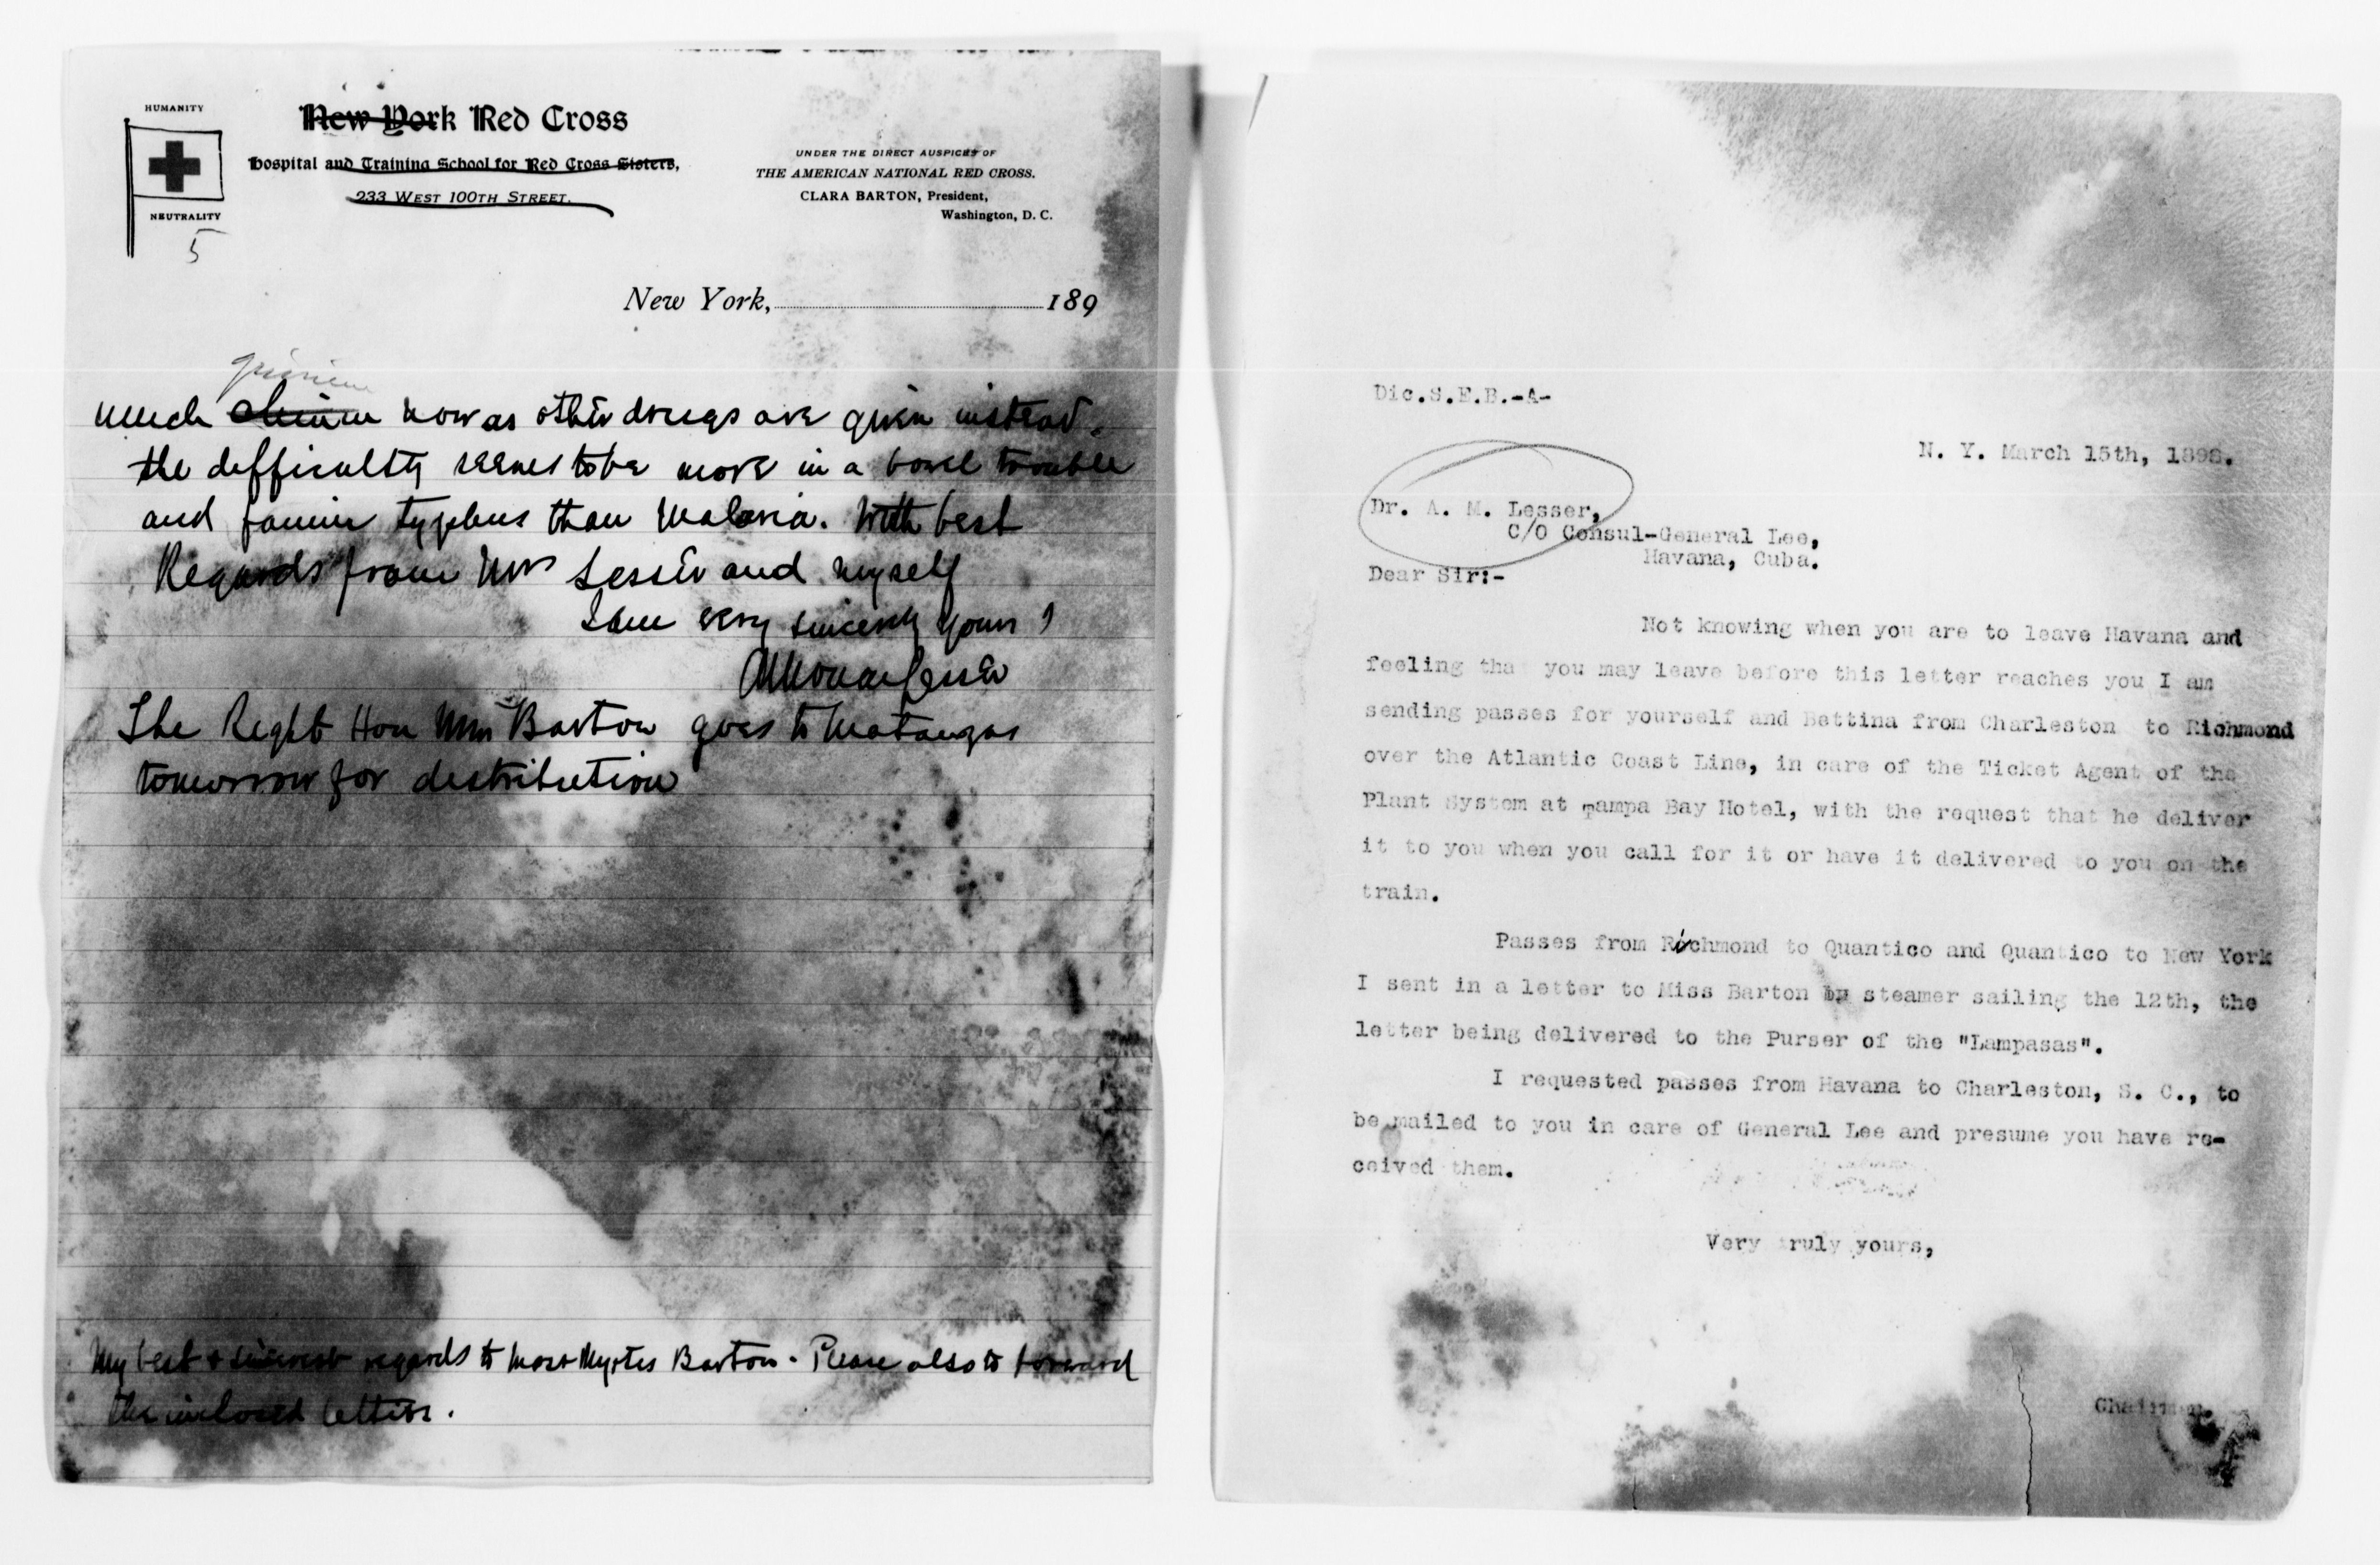 HUMANITY
New York Red Cross
Hospital and Training School for Red Cross Sisters,
233 WEST 100TH STREET.
NEUTRALITY
5
UNDER THE DIRECT AUSPICES OF
THE AMERICAN NATIONAL RED CROSS.
CLARA BARTON, President,
Washington, D. C.
New York, 189
quinine
much now as other drugs are given instead.
the defficulty seems to be more in a bowel trouble
and famin typhus than Malaria. With best
Regards from Mrs Lesser and myself
I am very sincerely yours
The Right Hon Miss Barton goes to Matanzas
tomorrow for distribution
My best & sincerest regards to Myrtis Barton. Please also to forward
the inclosed letters.
Dic.S.E.B.-A-
N. Y. March 15th, 1898.
Dr. A. M. Lesser,
C/O Consul-General Lee,
Havana, Cuba.
Dear Sir:-
Not knowing when you are to leave Havana and
feeling tha you may leave before this letter reaches you I am
sending passes for yourself and Bettina from Charleston to Richmond
over the Atlantic Coast Line, in care of the Ticket Agent of the
Plant System at Tampa Bay Hotel, with the request that he deliver
it to you when you call for it or have it delivered to you on the
train.
Passes from Richmond to Quantico and Quantico to New York
I sent in a letter to Miss Barton by steamer sailing the 12th, the
letter being delivered to the Purser of the "Lampasas".
I requested passes from Havana to Charleston, S. C., to
be mailed to you in care of General Lee and presume you have re-
ceived them.
Very truly yours,
Chairman.